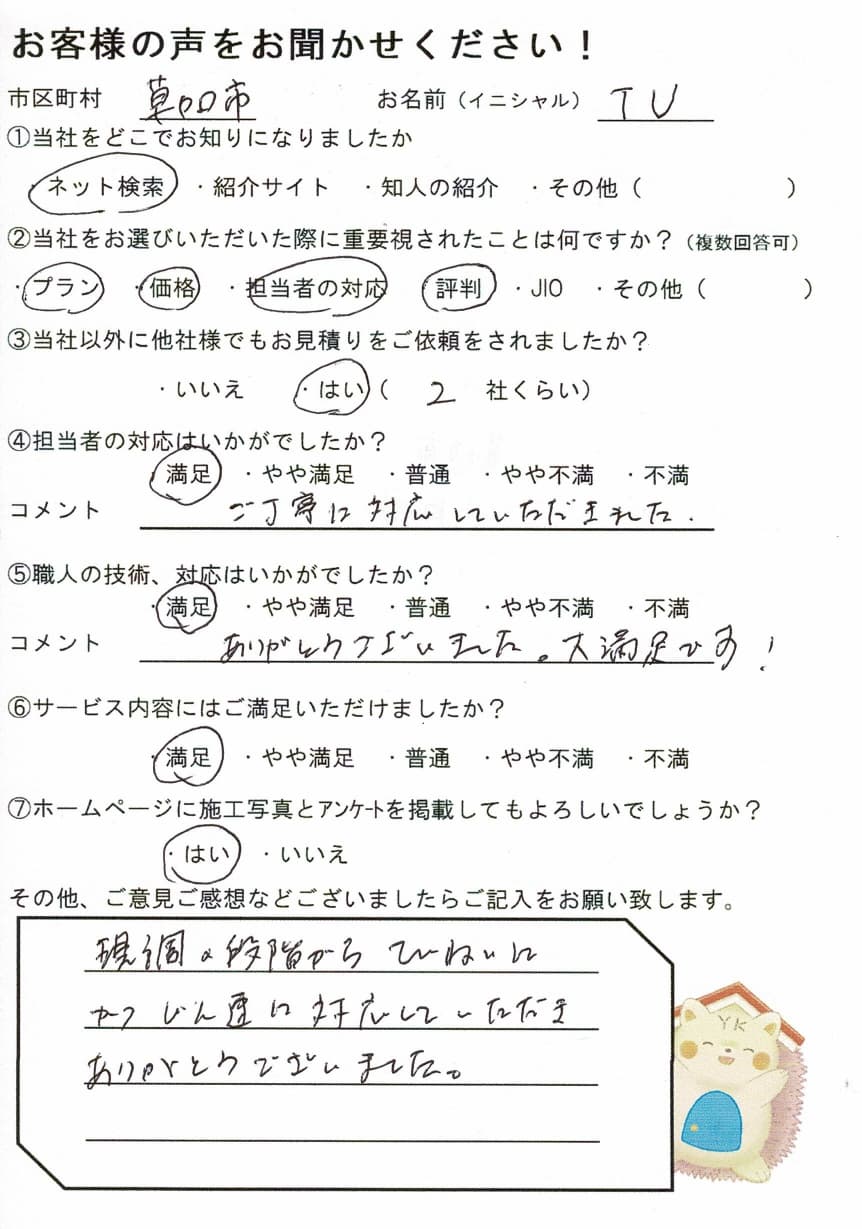 お客様の声をお聞かせください！
市区町村 草加市 お名前（イニシャル） TU
①当社をどこでお知りになりましたか
・ネット検索 ・紹介サイト ・知人の紹介 ・その他（ ）
②当社をお選びいただいた際に重要視されたことは何ですか？（複数回答可）
・プラン ・価格 ・担当者の対応 ・評判 ・JIO ・その他（ ）
③当社以外に他社様でもお見積りをご依頼をされましたか？
・いいえ ・はい（ 2 社くらい）
④担当者の対応はいかがでしたか？
・満足 ・やや満足 ・普通 ・やや不満 ・不満
コメント ご丁寧に対応していただきました.
⑤職人の技術、対応はいかがでしたか？
・満足 ・やや満足 ・普通 ・やや不満 ・不満
コメント ありがとうございました。大満足です！
⑥サービス内容にはご満足いただけましたか？
・満足 ・やや満足 ・普通 ・やや不満 ・不満
⑦ホームページに施工写真とｱﾝｹｰﾄを掲載してもよろしいでしょうか？
・はい ・いいえ
その他、ご意見ご感想などございましたらご記入をお願い致します。
現調の段階から ていねいに
かつ じん速に対応していただき
ありがとうございました。
YK